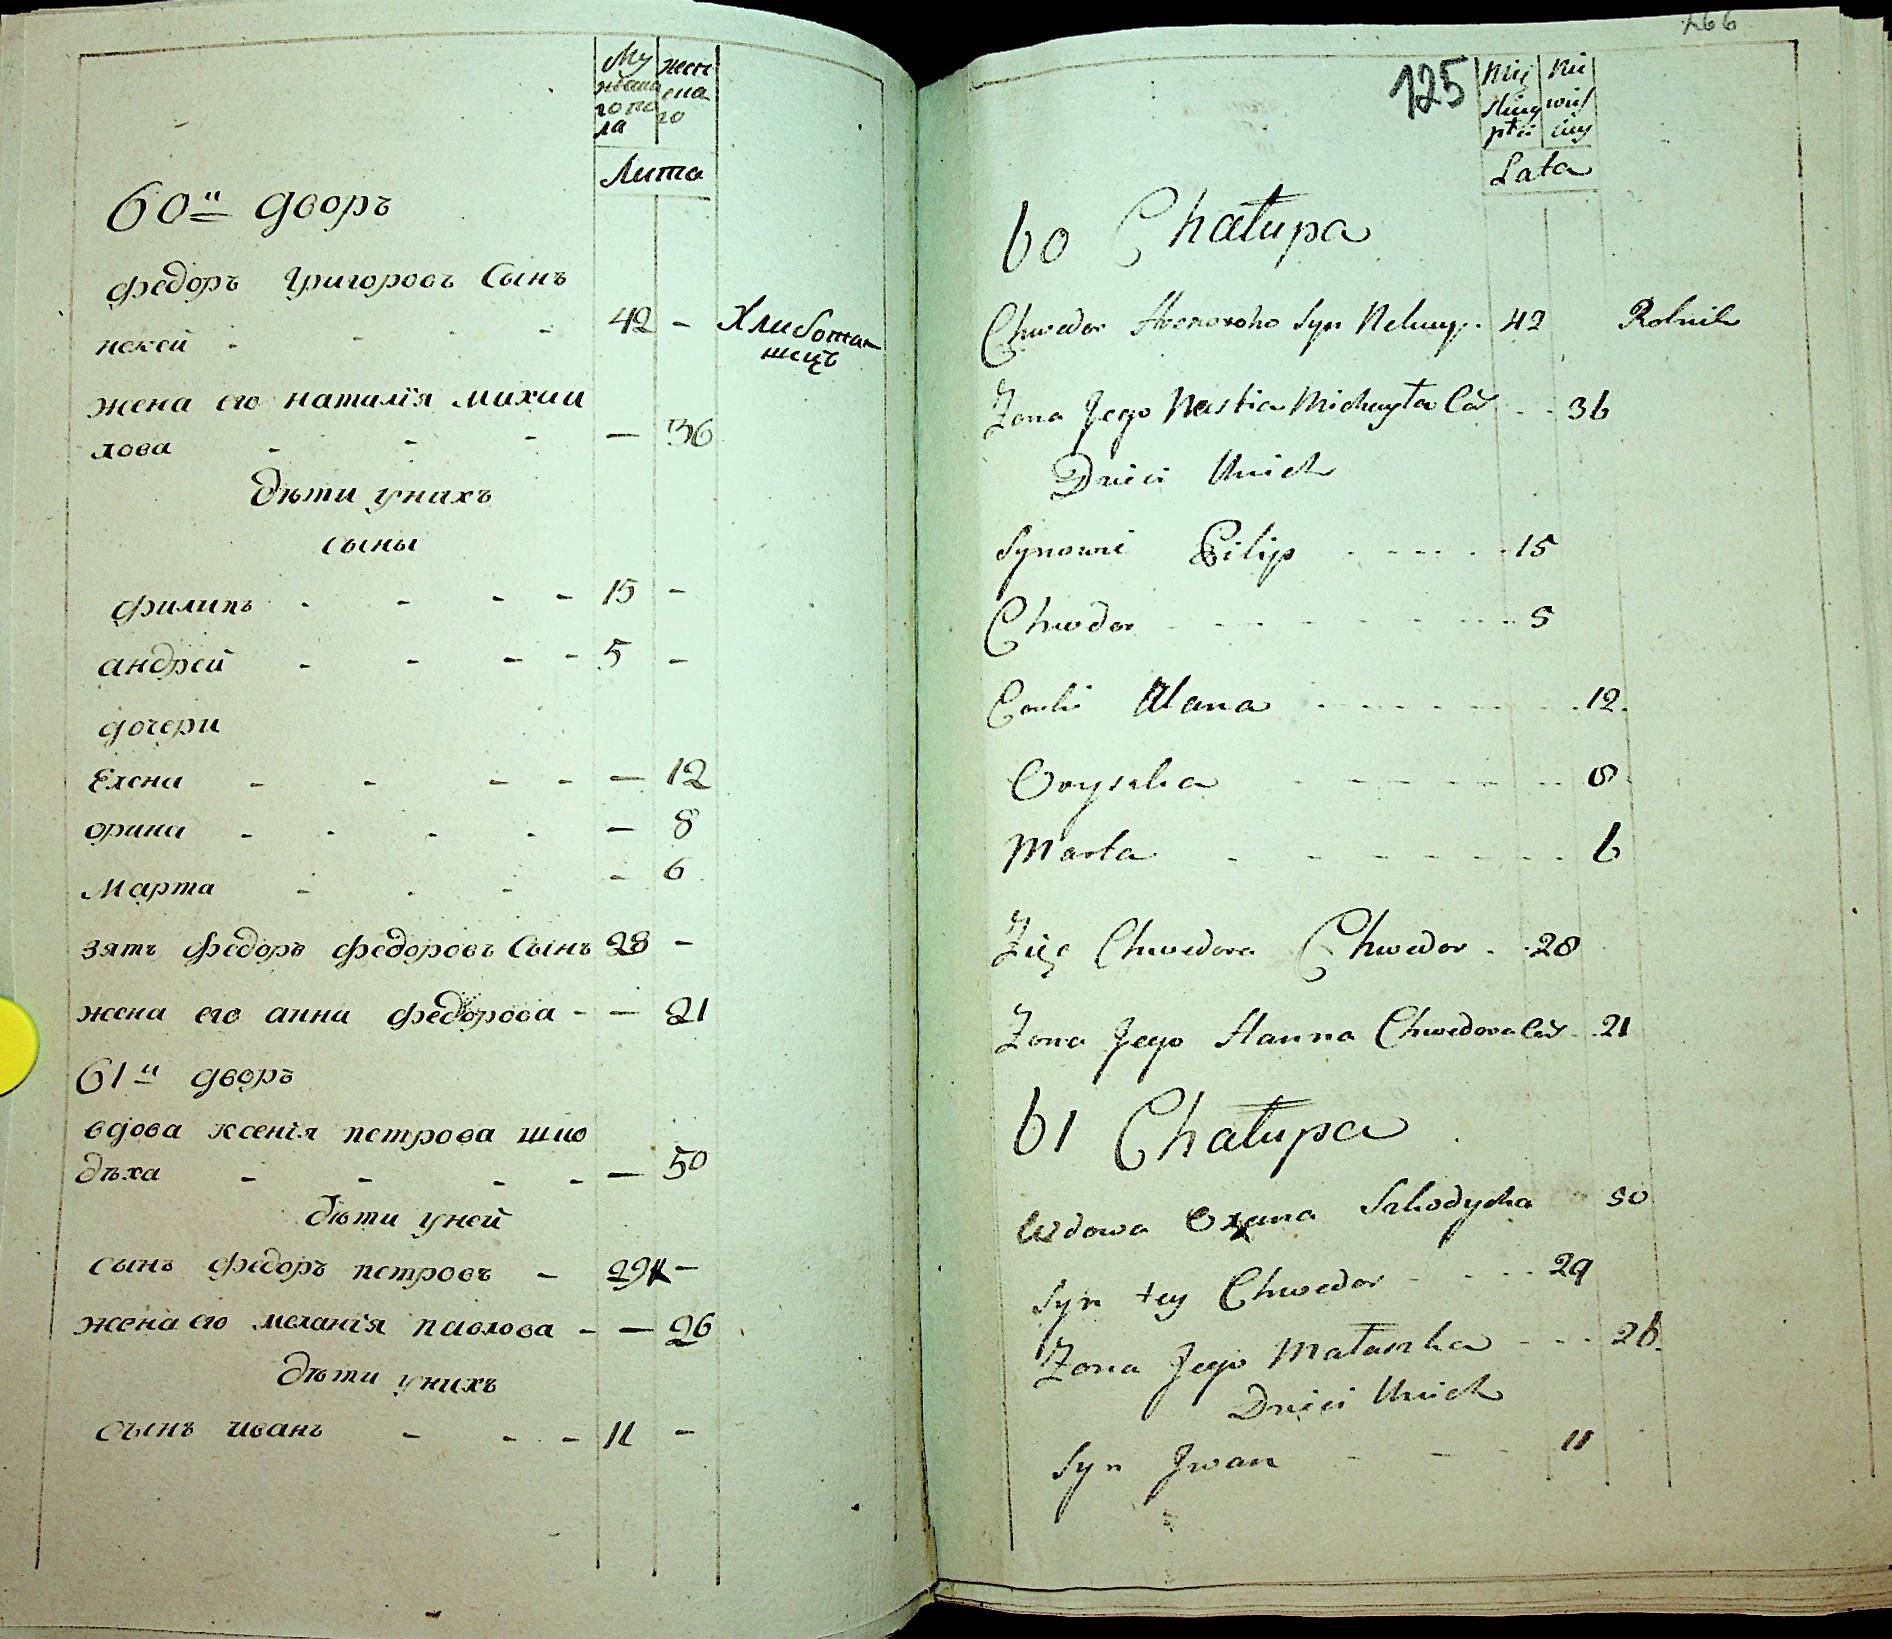 Му
жеска
го по
ла
жен
ска
го
Лита
60й дворъ
федоръ григоровъ сынъ
некей - - - - 42 - Хлибопа-
шецъ
жена его наталія михаи
лова - - - - 36
дѣти унихъ
сыны
филипъ - - - - 15 -
андрей - - - - 5 -
дочери
Елена - - - - - 12
орина - - - - - 8
Марта - - - - 6
зять федоръ федоровъ сынъ 28 -
жена его анна федорова - - 21
61й дворъ
вдова ксенія петрова шко
дѣха - - - - - 50
дѣти уней
сынъ федоръ петровъ - 29 -
жена его меланія павлова - - 26
дѣти унихъ
сынъ иванъ - - - 11 -
466
125
Lata
60 Chałupa
Chwedor Syn 42 Rolnik
Zona Jego Nastia Michayła Cór - - 36
Dzieci Unich
Synowie Pilip - - - - - 15
Chwedor - - - - - - - - 5
Corki Ulana - - - - - - - 12.
Oryszka - - - - - - 8
Marta - - - - - - - 6
Zięc Chwedora Chwedor - - 28
Zona Jego Hanna Chwedora Cór - - 21
61 Chałupa
Wdowa Oxana Szkodycha 50
Syn tey Chwedor - - - - 29
Zona Jego Małaszka - - - 26.
Dzieci Unich
Syn Jwan - - - 11